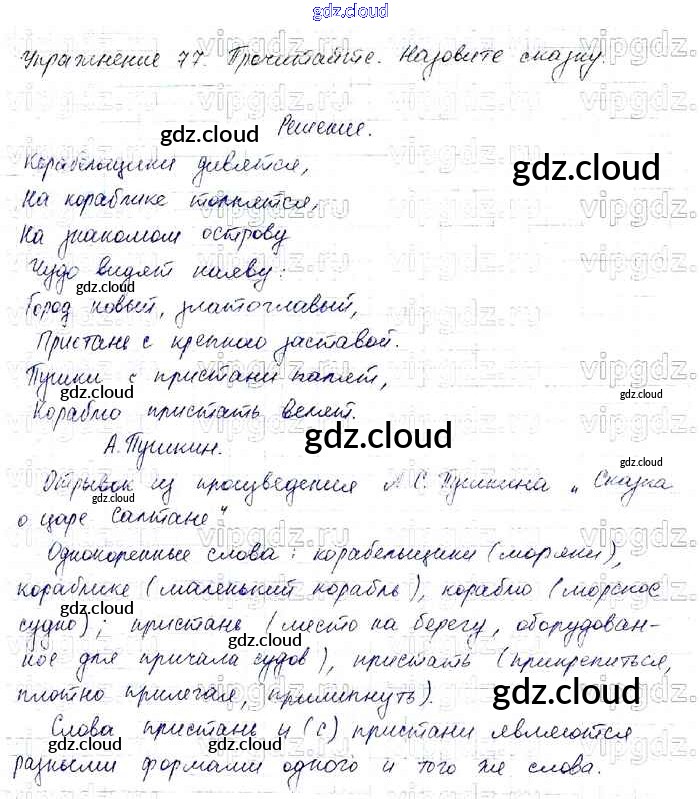 gdz.cloud
Упражнение 77. Прочитайте. Назовите сказку.
Решение.
Корабельщики дивятся,
На кораблике толпятся,
На знакомом острову
Чудо видят наяву:
Город новый, златоглавый,
Пристань с крепкою заставой.
Пушки с пристани палят,
Кораблю пристать велят.
А. Пушкин.
Отрывок из произведения А.С. Пушкина „Сказка
о царе Салтане"
Однокоренные слова: корабельщики (моряки),
кораблике (маленький корабль), кораблю (морское
судно); пристань (место на берегу, оборудован-
ное для причала судов), пристать (прикрепиться,
плотно прилегая, прилипнуть).
Слова пристань и (с) пристани являются
разными формами одного и того же слова.